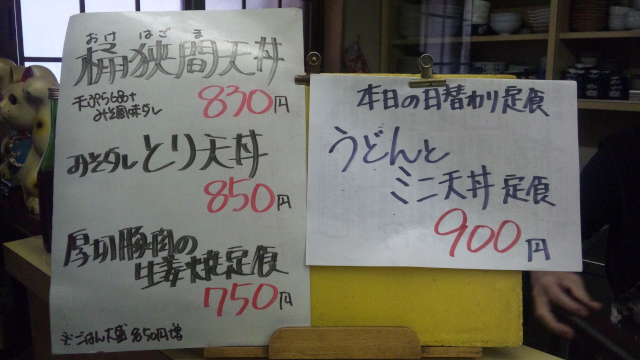 おけはざま
桶狭間天丼
天ぷら6品+
みそ風味タレ
830円
みそダレとり天丼
850円
厚切豚肉の
生姜焼定食
750円
※ごはん大盛各50円増
本日の日替わり定食
うどんと
ミニ天丼定食
900円